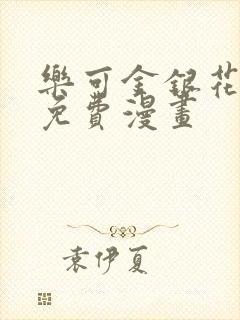 樂可金銀花
免費漫畫
袁伊夏